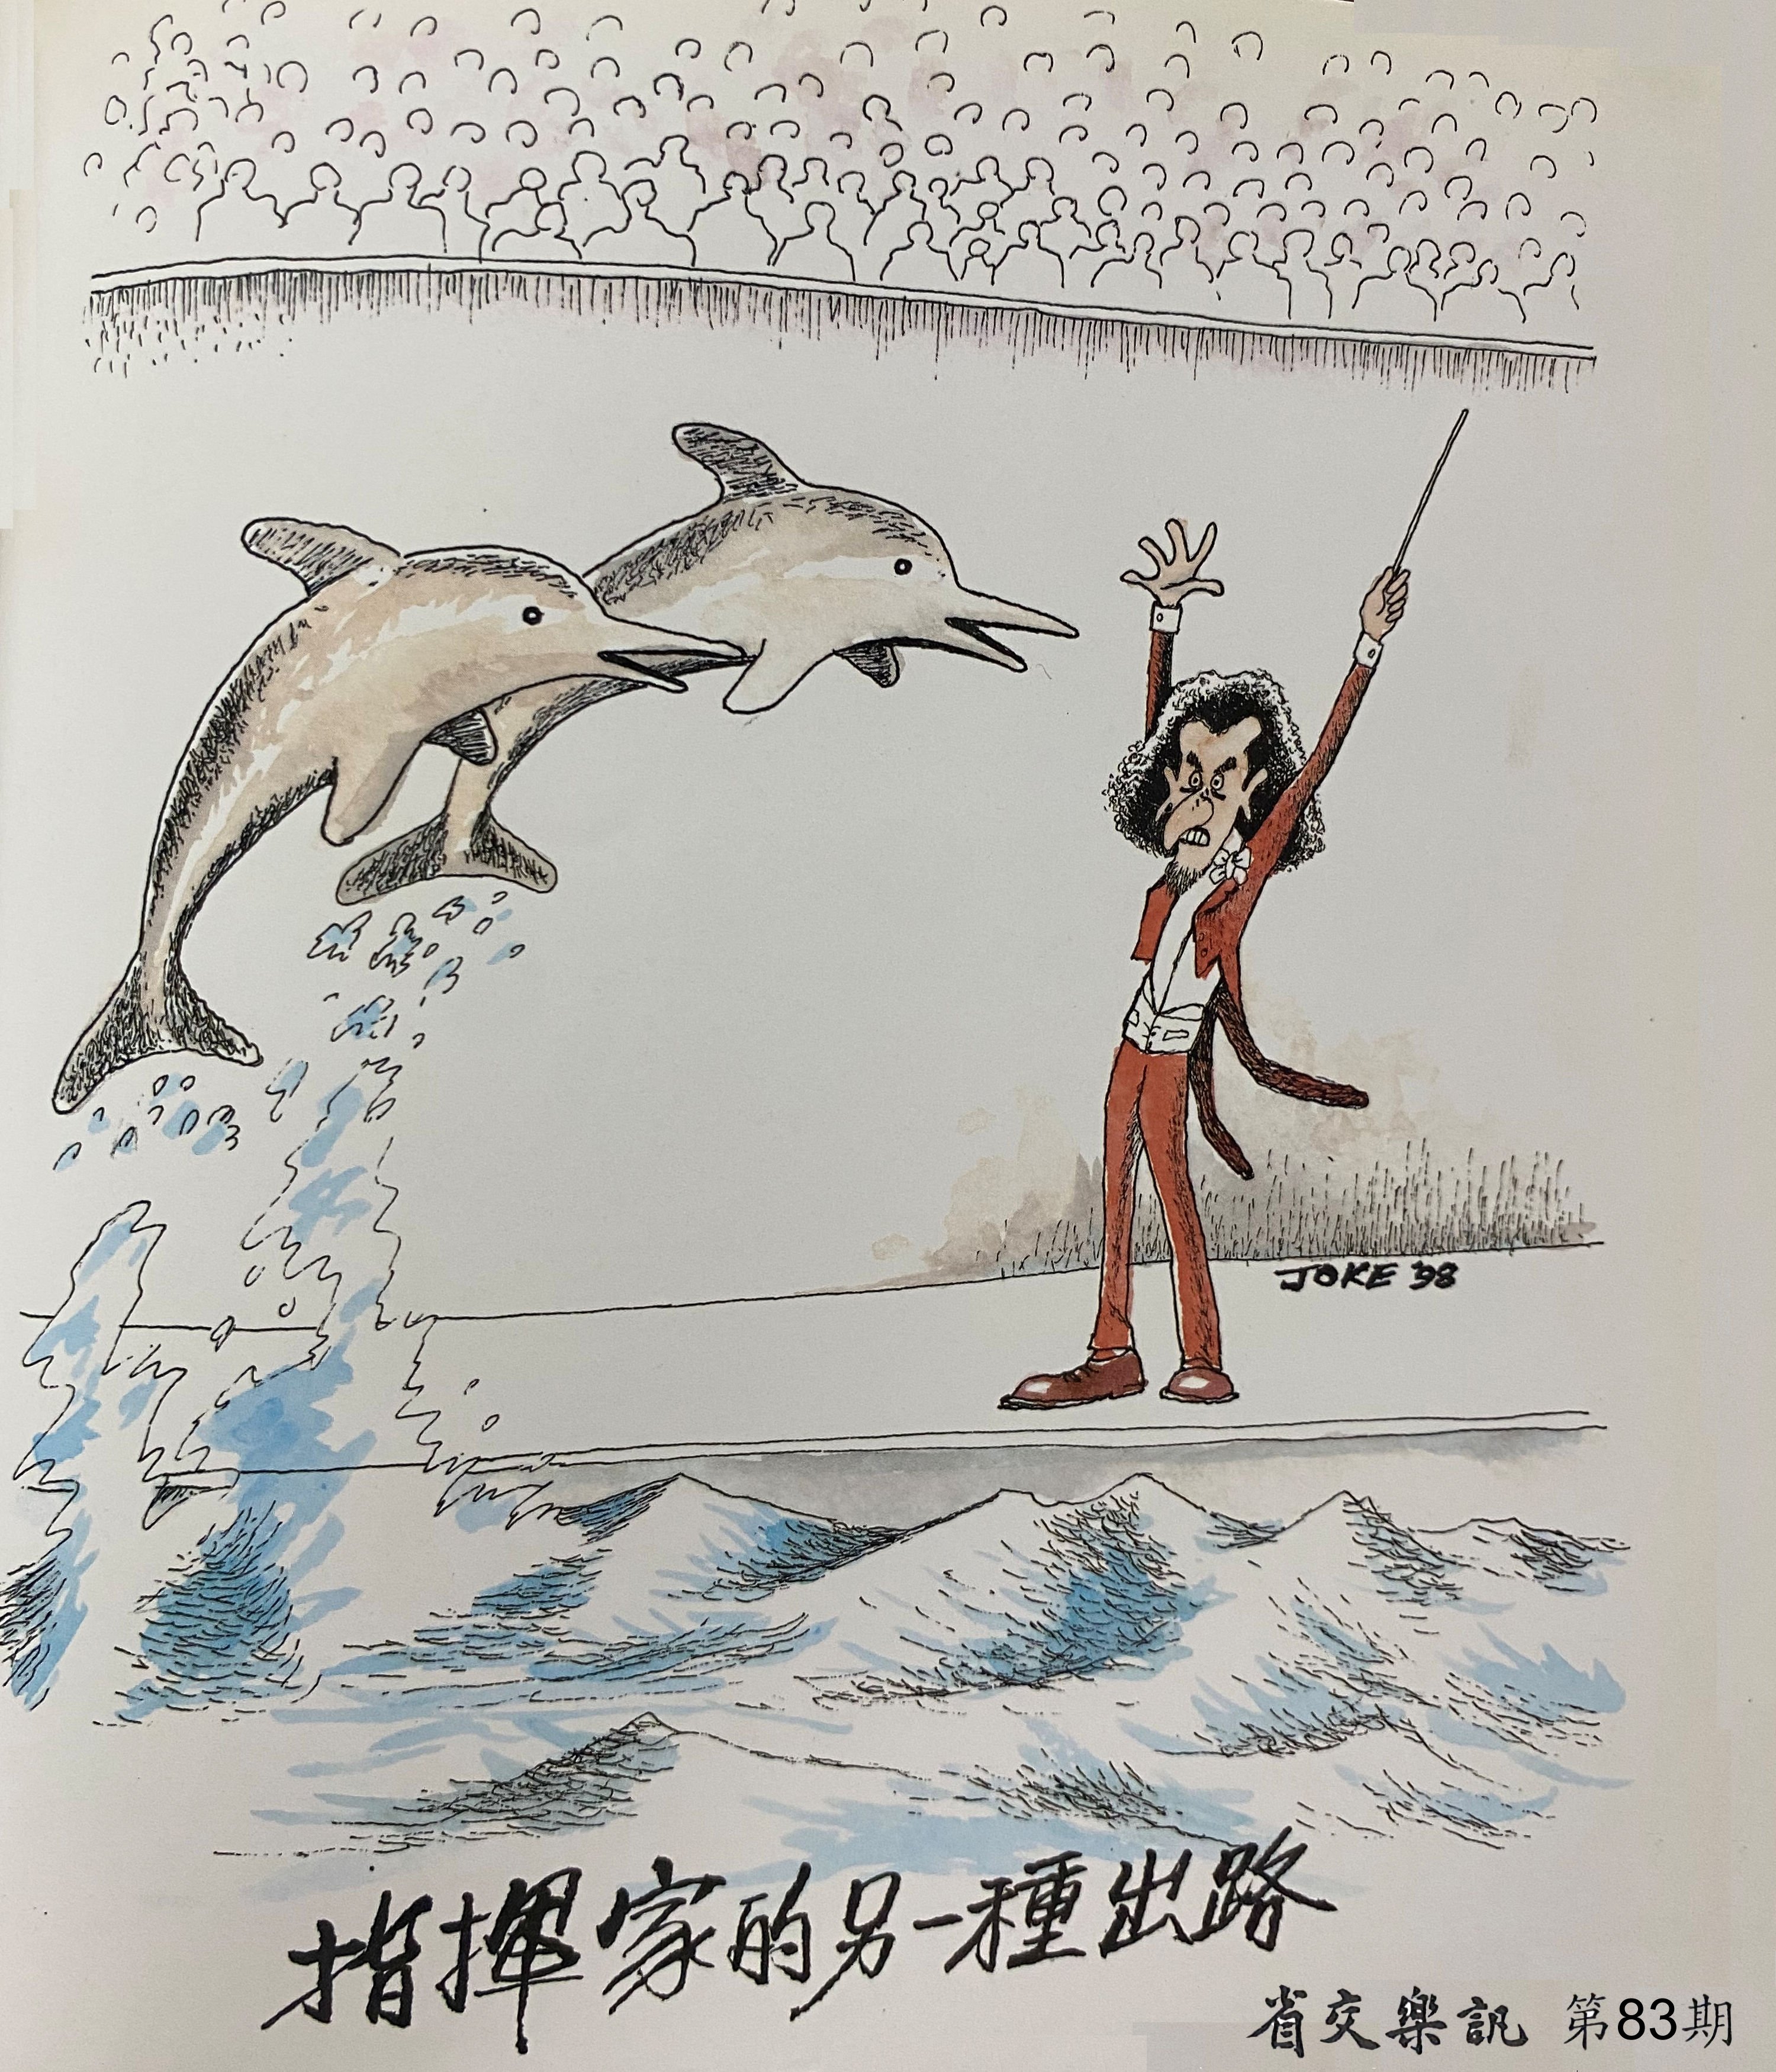 JOKE '98
指揮家的另一種出路
省交樂訊 第83期